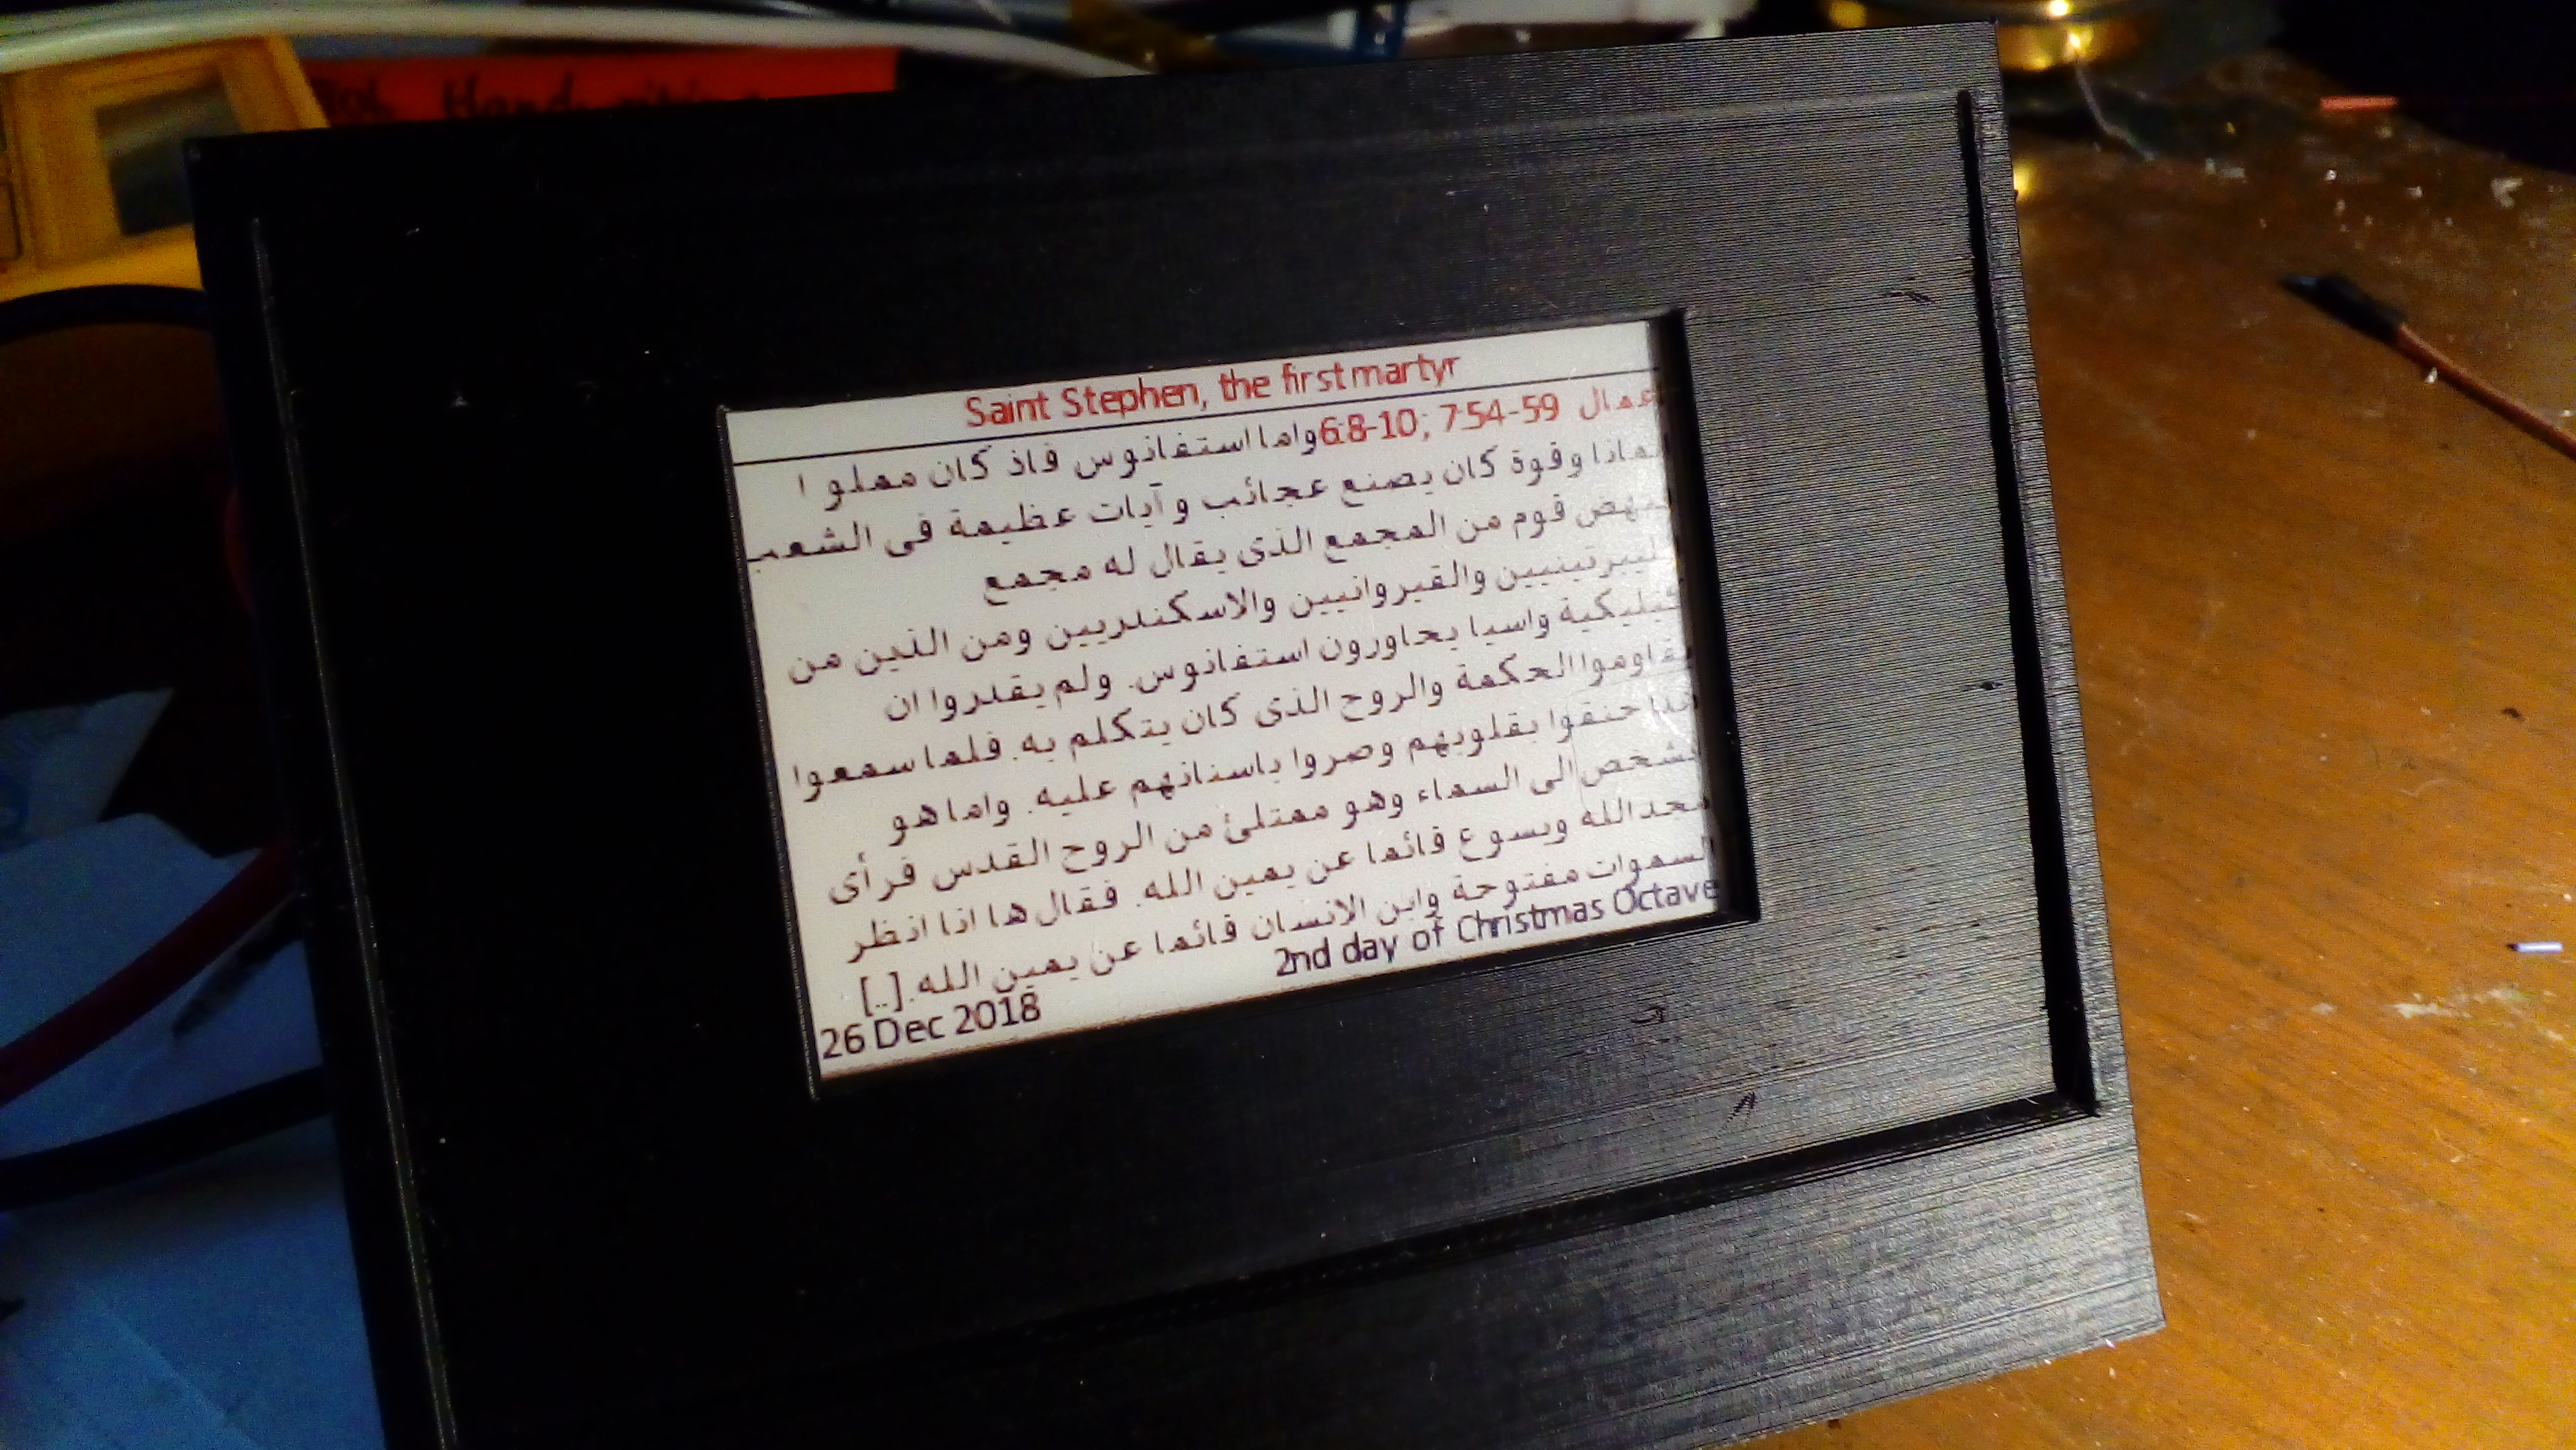 Handwriting
Saint Stephen, the first martyr
اعمال 6:8-10; 7:54-59 واما استفانوس فاذ كان مملوا
ايمانا وقوة كان يصنع عجائب وآيات عظيمة في الشعب
فنهض قوم من المجمع الذي يقال له مجمع
الليبرتينيين والقيروانيين والاسكندريين ومن الذين من
كيليكية واسيا يحاورون استفانوس. ولم يقدروا ان
يقاوموا الحكمة والروح الذي كان يتكلم به. فلما سمعوا
هذا حنقوا بقلوبهم وصروا باسنانهم عليه. واما هو
فشخص الى السماء وهو ممتلئ من الروح القدس فرأى
مجد الله ويسوع قائما عن يمين الله. فقال ها انا انظر
السموات مفتوحة وابن الانسان قائما عن يمين الله. [...]
26 Dec 2018 2nd day of Christmas Octave